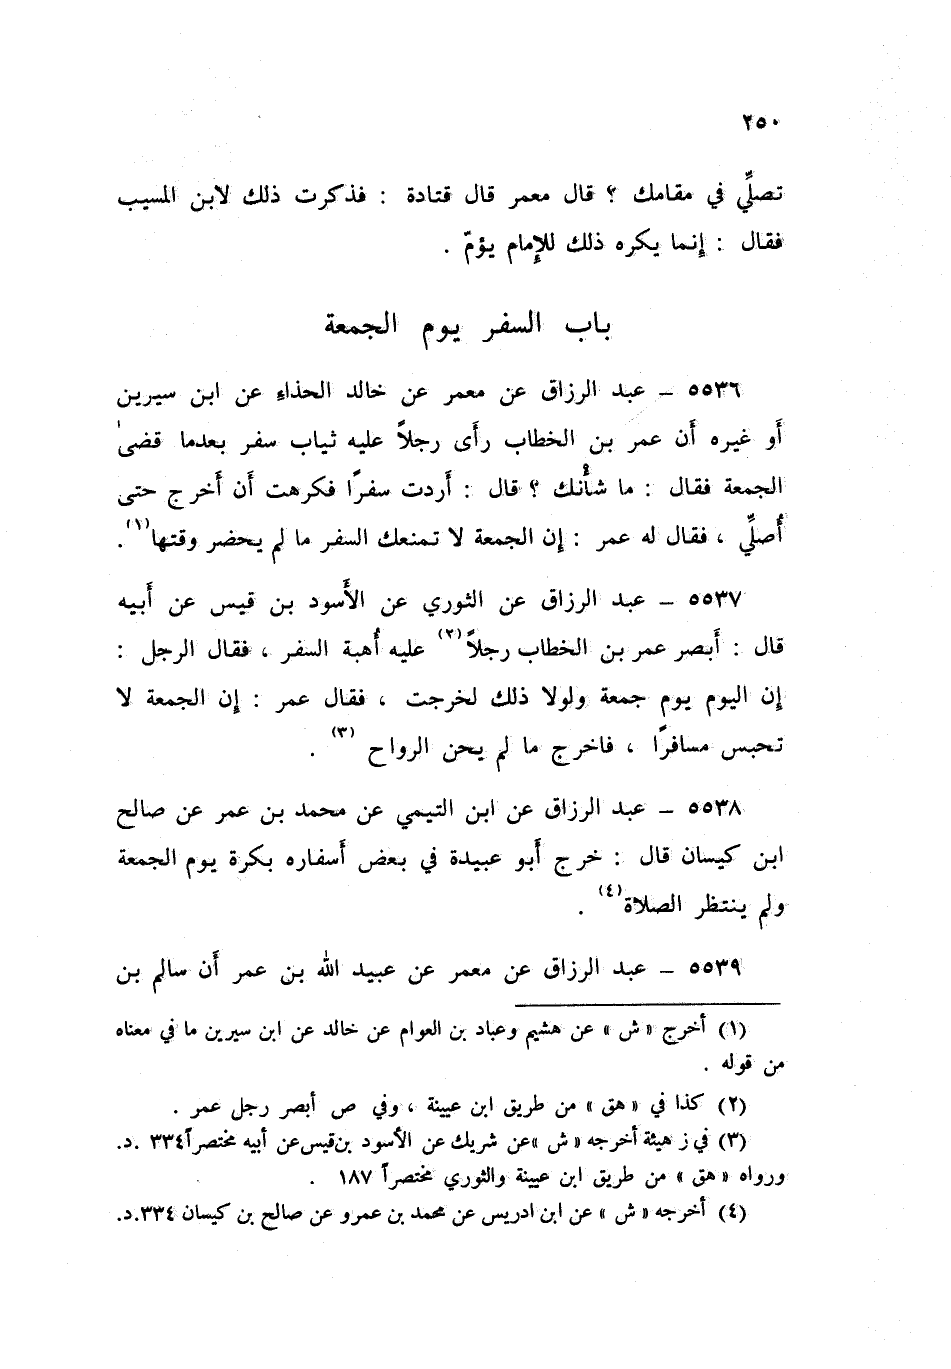 ٢٥٠
تصلِّي في مقامك ؟ قال معمر قال قتادة : فذكرت ذلك لابن المسيب
فقال : إنما يكره ذلك للإمام يؤمّ .
باب السفر يوم الجمعة
٥٥٣٦ – عبد الرزاق عن معمر عن خالد الحذاء عن ابن سيرين
أو غيره أن عمر بن الخطاب رأى رجلاً عليه ثياب سفر بعدما قضى
الجمعة فقال : ما شأنك ؟ قال : أردت سفرًا فكرهت أن أخرج حتى
أُصلِّي ، فقال له عمر : إن الجمعة لا تمنعك السفر ما لم يحضر وقتها(١).
٥٥٣٧ – عبد الرزاق عن الثوري عن الأسود بن قيس عن أبيه
قال : أبصر عمر بن الخطاب رجلاً(٢) عليه أُهبة السفر ، فقال الرجل :
إن اليوم يوم جمعة ولولا ذلك لخرجت ، فقال عمر : إن الجمعة لا
تحبس مسافرًا ، فاخرج ما لم يحن الرواح (٣) .
٥٥٣٨ – عبد الرزاق عن ابن التيمي عن محمد بن عمر عن صالح
ابن كيسان قال : خرج أبو عبيدة في بعض أسفاره بكرة يوم الجمعة
ولم ينتظر الصلاة(٤) .
٥٥٣٩ – عبد الرزاق عن معمر عن عبيد الله بن عمر أن سالم بن
(١) أخرج « ش » عن هشيم وعباد بن العوام عن خالد عن ابن سيرين ما في معناه
من قوله .
(٢) كذا في « هق » من طريق ابن عيينة ، وفي ص أبصر رجل عمر .
(٣) في ز هيئة أخرجه « ش »عن شريك عن الأسود بن قيس عن أبيه مختصراً ٣٣٤ .د.
ورواه « هق » من طريق ابن عيينة والثوري مختصراً ١٨٧ .
(٤) أخرجه « ش » عن ابن ادريس عن محمد بن عمرو عن صالح بن كيسان ٣٣٤.د.